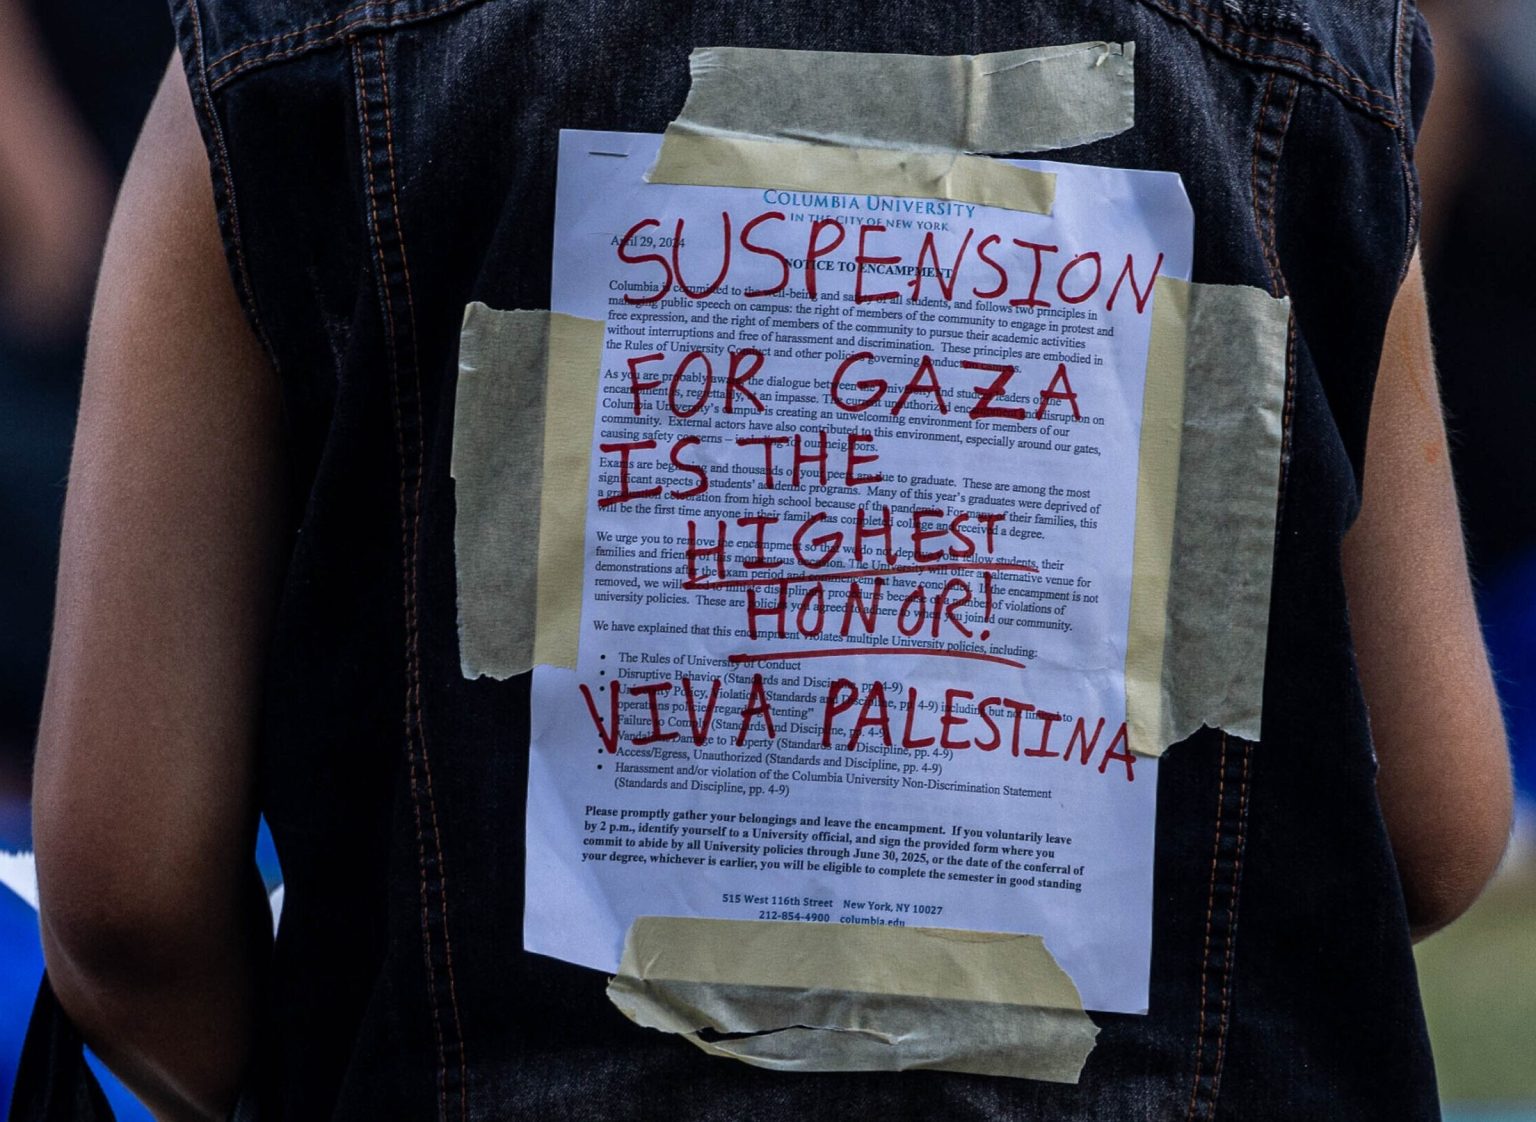 COLUMBIA UNIVERSITY
IN THE CITY OF NEW YORK
SUSPENSION
FOR GAZA
IS THE
HIGHEST
HONOR!
VIVA PALESTINA
April 29, 2024
NOTICE TO ENCAMPMENT
Columbia is committed to the well-being and safety of all students, and follows two principles in
managing public speech on campus: the right of members of the community to engage in protest and
free expression, and the right of members of the community to pursue their academic activities
without interruptions and free of harassment and discrimination. These principles are embodied in
the Rules of University Conduct and other policies governing conduct on campus.
As you are probably aware, the dialogue between the University and student leaders of the
encampment is, regrettably, at an impasse. The current unauthorized encampment and disruption on
Columbia University's campus is creating an unwelcoming environment for members of our
community. External actors have also contributed to this environment, especially around our gates,
causing safety concerns – including for our neighbors.
Exams are beginning and thousands of your peers are due to graduate. These are among the most
significant aspects of students' academic programs. Many of this year's graduates were deprived of
a graduation celebration from high school because of the pandemic. For many of their families, this
will be the first time anyone in their family has completed college and received a degree.
We urge you to remove the encampment so that we do not deprive your fellow students, their
families and friends of this momentous occasion. The University will offer an alternative venue for
demonstrations after the exam period and commencement have concluded. If the encampment is not
removed, we will need to initiate disciplinary procedures because of a number of violations of
university policies. These are policies you agreed to adhere to when you joined our community.
We have explained that this encampment violates multiple University policies, including:
• The Rules of University Conduct
• Disruptive Behavior (Standards and Discipline, pp. 4-9)
• University Policy, Violation (Standards and Discipline, pp. 4-9) including but not limited to
operations policies regarding "tenting"
• Failure to Comply (Standards and Discipline, pp. 4-9)
• Vandalism/Damage to Property (Standards and Discipline, pp. 4-9)
• Access/Egress, Unauthorized (Standards and Discipline, pp. 4-9)
• Harassment and/or violation of the Columbia University Non-Discrimination Statement
(Standards and Discipline, pp. 4-9)
Please promptly gather your belongings and leave the encampment. If you voluntarily leave
by 2 p.m., identify yourself to a University official, and sign the provided form where you
commit to abide by all University policies through June 30, 2025, or the date of the conferral of
your degree, whichever is earlier, you will be eligible to complete the semester in good standing
515 West 116th Street New York, NY 10027
212-854-4900 columbia.edu